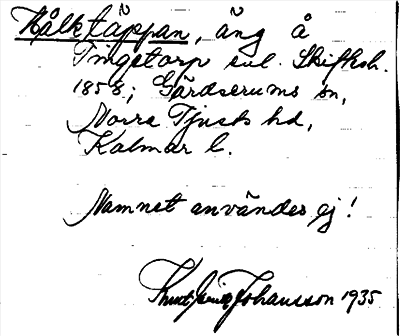 Kålktäppan, äng å
Tingetorp enl. Skifksh.
1858; Gärdserums sn,
Norra Tjusts hd,
Kalmar l.
Namnet användes ej!
Knut Johansson 1935